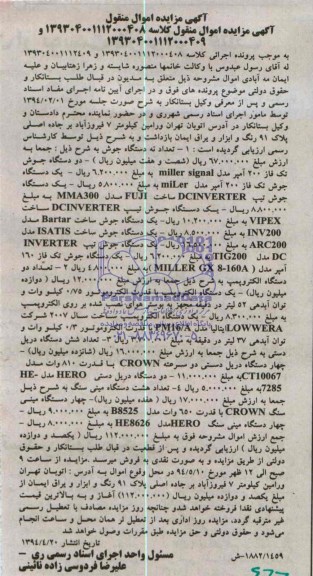 آگهی مزایده اموال منقول
آگهی مزایده اموال منقول کلاسه ۱۳۹۳۰۴۰۰۱۱۱۲۰۰۰۴۰۸ و
۱۳۹۳۰۴۰۰۱۱۱۲۰۰۰۴۰۹
به موجب پرونده اجرائی کلاسه ۱۳۹۳۰۴۰۰۱۱۱۲۰۰۰۴۰۸ و
له آقای رسول عبدوس با وکالت خانمها منصوره شایسته و زهرا زهتابیان و علیه
ایمان مه آبادی اموال مشروحه ذیل متعلق به مدیون در قبال طلب بستانکار و
حقوق دولتی موضوع پرونده های فوق و در اجرای آیین نامه اجرای مفاد اسناد
رسمی و پس از معرفی وکیل بستانکار به شرح صورت جلسه مورخ ۱۳۹۴/۰۲/۰۱
توسط مامور اجرای اسناد رسمی شهرری و در حضور نماینده محترم دادستان و
وکیل بستانکار در آدرس اتوبان تهران ورامین کیلومتر ۷ فیروزآباد بر جاده اصلی
پلاک ۹۱ رنگ و ابزار و یراق ایمان بازداشت و به شرح ذیل توسط کارشناس
رسمی ارزیابی گردیده است : ۱ – تعداد نه دستگاه جوش به شرح ذیل : جمعا به
ارزش مبلغ ۶۷/۰۰۰/۰۰۰ ریال (شصت و هفت میلیون ریال ) – دو دستگاه جوش
تک فاز ۲۰۰ آمپر مدل miller signal به مبلغ ۶/۲۰۰/۰۰۰ ریال – یک دستگاه
جوش تک فاز ۲۰۰ آمپر مدل miLer به مبلغ ۵/۸۰۰/۰۰۰ ریال – یک دستگاه
جوش تیپ DCINVERTER ساخت FUJI مدل MMA300 به مبلغ
۸/۸۰۰/۰۰۰ ریال – یک دستگاه جوش تیپ DCINVERTER ساخت
VIPEX به مبلغ ۱۰/۲۰۰/۰۰۰ ریال – یک دستگاه جوش ساخت Bartar مدل
INV200 به مبلغ ۸/۵۰۰/۰۰۰ ریال – یک دستگاه جوش ساخت ISATIS مدل
ARC200 به مبلغ ریال – یک دستگاه جوش تیپ INVERTER
DC مدل TIG200 به مبلغ ریال – یک دستگاه جوش تک فاز ۱۶۰
آمپر مدل ( MILLER GX 8-160A ) به مبلغ ریال ۲ – تعداد دو
دستگاه الکتروپمپ به شرح ذیل جمعا به ارزش مبلغ ۱۲/۰۰۰/۰۰۰ ریال (دوازده
میلیون ریال ) – یک دستگاه الکتروپمپ با قدرت الکتروموتور کیلو وات و
توان آبدهی ۵۲ لیتر در دقیقه مجهز به پوش هوای نصب شده بر روی الکتروپمپ
به مبلغ ۸/۳۰۰/۰۰۰ ریال – یک دستگاه الکتروپمپ ساخت سال ۲۰۰۷ شرکت
LOWWERA ایتالیا مدل PM16/A با قدرت الکتروموتور ۰/۳ کیلو وات و
توان آبدهی ۳۷ لیتر در دقیقه به مبلغ ریال ۳– تعداد شش دستگاه دریل
دستی به شرح ذیل جمعا به ارزش مبلغ ۱۶/۰۰۰/۰۰۰ ریال (شانزده میلیون ریال) –
چهار دستگاه دریل دستی دو سرعت CROWN با قدرت ۸۱۰ وات مدل
CT10067 به مبلغ ۱۱/۰۰۰/۰۰۰ – دو دستگاه دریل دستی HERO مدل HE-
7285 به مبلغ ۵/۰۰۰/۰۰۰ ریال ۴– تعداد هشت دستگاه مینی سنگ به شرح ذیل
جمعا به ارزش مبلغ ۱۷/۰۰۰/۰۰۰ ریال ( هفده میلیون ریال)– چهار دستگاه مینی
سنگ CROWN با قدرت ۶۵۰ وات مدل B8525 به مبلغ ۹/۰۰۰/۰۰۰ ریال –
چهار دستگاه مینی سنگ HERO مدل HE8626 به مبلغ ۸/۰۰۰/۰۰۰ ریال –
جمع ارزش اموال مشروحه فوق به مبلغ ۱۱۲/۰۰۰/۰۰۰ ریال ( یکصد و دوازده
میلیون ریال ) ارزیابی گردیده و پس از قطعیت در قبال طلب بستانکار و حقوق
دولتی از طریق مزایده و به صورت نقدی به فروش میرسد مزایده از ساعت ۹
صبح الی ۱۲ ظهر مورخ ۹۴/۵/۱۰ در محل وقوع اموال به آدرس : اتوبان تهران
ورامین کیلومتر ۷ فیروزآباد بر جاده اصلی پلاک ۹۱ رنگ و ابزار و یراق ایمان از
مبلغ یکصد و دوازده میلیون ریال (۱۱۲/۰۰۰/۰۰۰) آغاز و به بالاترین قیمت
پیشنهادی نقدا فروخته خواهد شد و چنانچه روز مزایده مصادف با تعطیل رسمی
غیر مترقبه گردد، مزایده روز اداری بعد از تعطیل در همان محل و ساعت انجام
میشود و حقوق دولتی و حق مزایده طبق مقررات وصول خواهد شد
تاریخ انتشار ۱۳۹۴/۴/۲۰
۱۸۸۲/۱۴۵۹–ش مسئول واحد اجرای اسناد رسمی ری –
علیرضا فردوسی زاده نائینی